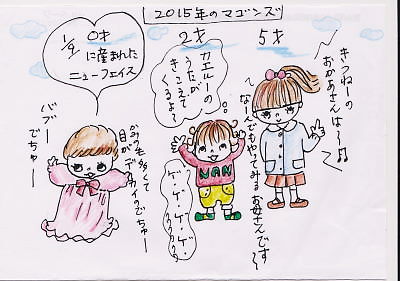 2015年のマゴンズ
0才
1/9
に産まれた
ニューフェイス
バブー
でちゅー
かみつも多くて
目がデカイのでちゅー
2才
カエルーの
うたが
きこえて
くるよ〜
NAN
ゲ・ゲ・ゲ・ゲ・
5才
きつねーの
おかあさんは〜♪
な〜んでもやってみる お母さんです〜